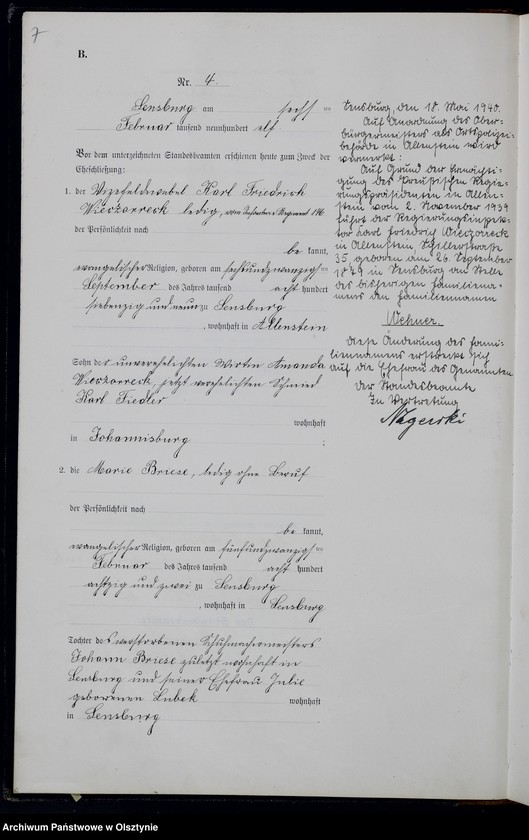 7
B.
Nr. 4.
Sensburg am sechs ten
Februar tausend neunhundert elf
Vor dem unterzeichneten Standesbeamten erschienen heute zum Zweck der
Eheschließung:
1. der Vizefeldwebel Karl Friedrich
Wieczorreck ledig, vom Infanterie Regiment 146
der Persönlichkeit nach
be kannt,
evangelischer Religion, geboren am sechsundzwanzigs ten
September des Jahres tausend acht hundert
siebenzig und neun zu Sensburg
, wohnhaft in Allenstein
Sohn der unverehelichten Wirtin Amanda
Wieczorreck, jetzt verehelichten Schmied
Karl Fiedler
wohnhaft
in Johannisburg ;
2. die Marie Briese, ledig ohne Beruf
der Persönlichkeit nach
be kannt,
evangelischer Religion, geboren am fünfundzwanzigs ten
Februar des Jahres tausend acht hundert
achtzig und zwei zu Sensburg
, wohnhaft in Sensburg
Tochter des verstorbenen Schuhmachermeisters
Johann Briese zuletzt wohnhaft in
Sensburg und seiner Ehefrau Julie
geborenen Lubek wohnhaft
in Sensburg
Sensburg, den 18. Mai 1940.
Auf Anordnung des Ober-
bürgermeisters als Ortspolizei-
behörde in Allenstein wird
vermerkt:
Auf Grund der Ermächti-
gung des Preußischen Regie-
rungspräsidenten in Allen-
stein vom 2. November 1939
führt der Regierungsinspek-
tor Karl Friedrich Wieczorreck
in Allenstein, Schillerstraße
35, geboren am 26. September
1879 in Sensburg an Stelle
des bisherigen Familienna-
mens den Familiennamen
Wehner.
Diese Änderung des Fami-
liennamens erstreckt sich
auf die Ehefrau des Genannten
Der Standesbeamte
In Vertretung
Archiwum Państwowe w Olsztynie